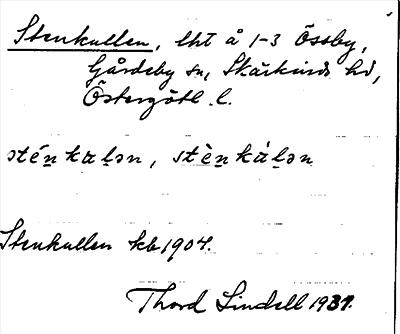 Stenkullen, lht å 1-3 Össby,
Gårdeby sn, Skärkinds hd,
Östergötl. l.
sténkalən, stènkàlən
Stenkullen kb 1904.
Thord Lindell 1931.